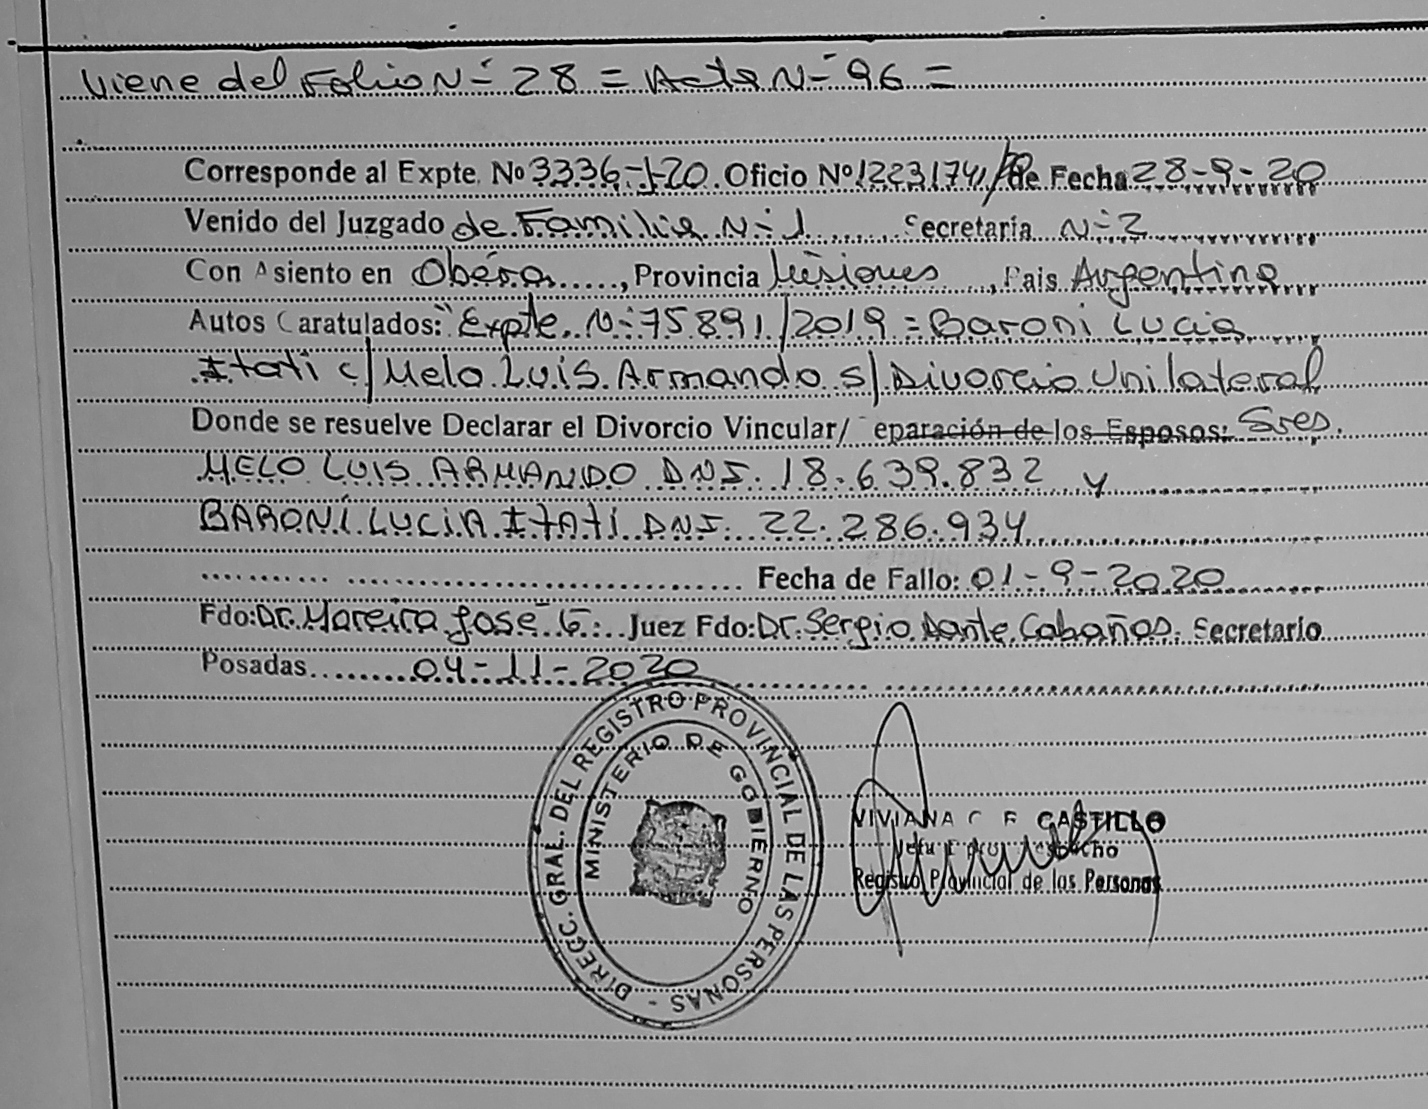 Viene del Folio N- 28 = Acta N- 96 =
Corresponde al Expte. Nº 3336-J-20. Oficio Nº 1223174/20 de Fecha 28-9-20
Venido del Juzgado de Familia N-1 Secretaría N-2
Con Asiento en Oberá, Provincia Misiones, Pais Argentina
Autos Caratulados: "Expte. N-75.891/2019 = Baroni Lucia
Itati c/ Melo Luis Armando s/ Divorcio Unilateral
Donde se resuelve Declarar el Divorcio Vincular/ eparación de los Esposos: Sres.
MELO LUIS ARMANDO DNI. 18.639.832 y
BARONÍ LUCIA ITATÍ DNI. 22.286.934
Fecha de Fallo: 01-9-2020
Fdo: Dr. Moreira José G. Juez Fdo: Dr. Sergio Dante Cabañas. Secretario
Posadas 04-11-2020
DIREGC. GRAL. DEL REGISTRO PROVINCIAL DE LAS PERSONAS -
MINISTERIO DE GOBIERNO
VIVIANA CASTILLO
Registro Provincial de las Personas